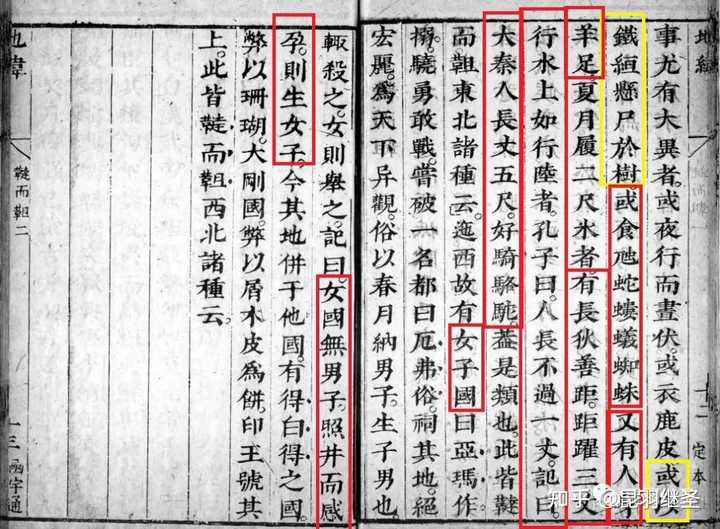 地緯
十二
定本
事尤有大異者。或夜行而晝伏。或衣鹿皮。或
鐵絙懸尸於樹。或食虺蛇螻蟻蜘蛛。又有人
羊足。夏月履二尺氷者。有長狄善距。距躍三丈
行水上如行陸者。孔子曰。人長不過一丈。記曰。
大秦人長丈五尺。好騎駱駝。蓋是類也。此皆韃
而靼東北諸種云。迤西故有女子國曰亞瑪作
搦。驍勇敢戰。嘗破一名都曰厄弗俗。祠其地絕
宏麗。爲天下异觀。俗以春月納男子。生子男也
輒殺之。女則舉之。記曰。女國無男子。照井而感
孕。則生女子。今其地併于他國。有得白得之國。
弊以珊瑚。大剛國。弊以屑木皮爲餅。印王號其
上。此皆韃而靼西北諸種云。
地緯
韃而靼二
十三
函宇通
知乎 @昆羽继圣